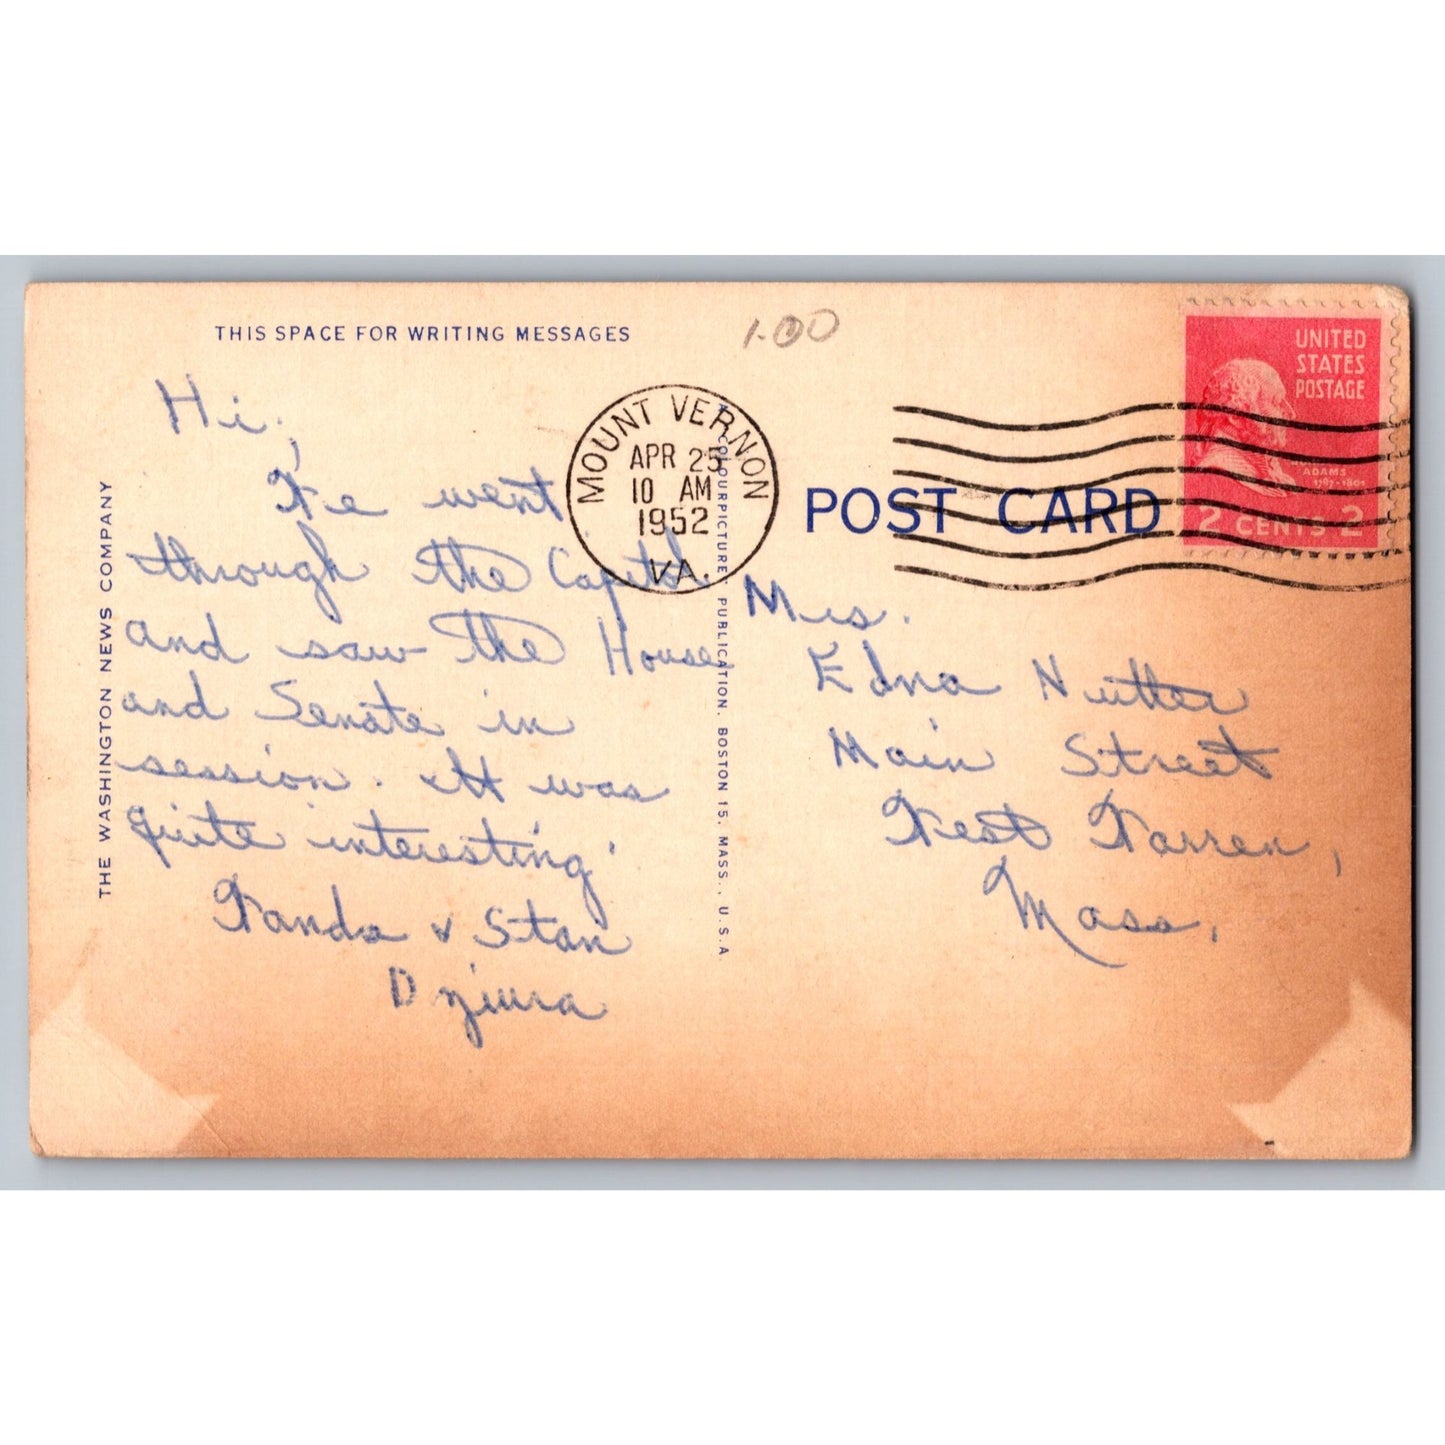 THIS SPACE FOR WRITING MESSAGES
1.00
Hi,
We went
through the Capitol
and saw the House
and Senate in
session. It was
quite interesting.
Wanda & Stan
Dziura
THE WASHINGTON NEWS COMPANY
MOUNT VERNON
APR 25
10 AM
1952
VA.
COLOURPICTURE PUBLICATION. BOSTON 15. MASS., U.S.A.
POST CARD
UNITED
STATES
POSTAGE
ADAMS
1797·1801
2 CENTS 2
Mrs.
Edna Nutter
Main Street
West Warren,
Mass.